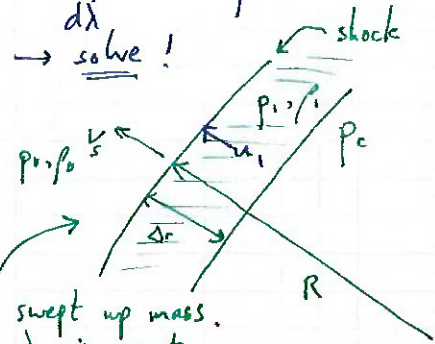 dλ
→ solve !
shock
p₁, ρ₁
p₀, ρ₀
Vₛ
u₁
p_c
Δr
R
swept up mass.